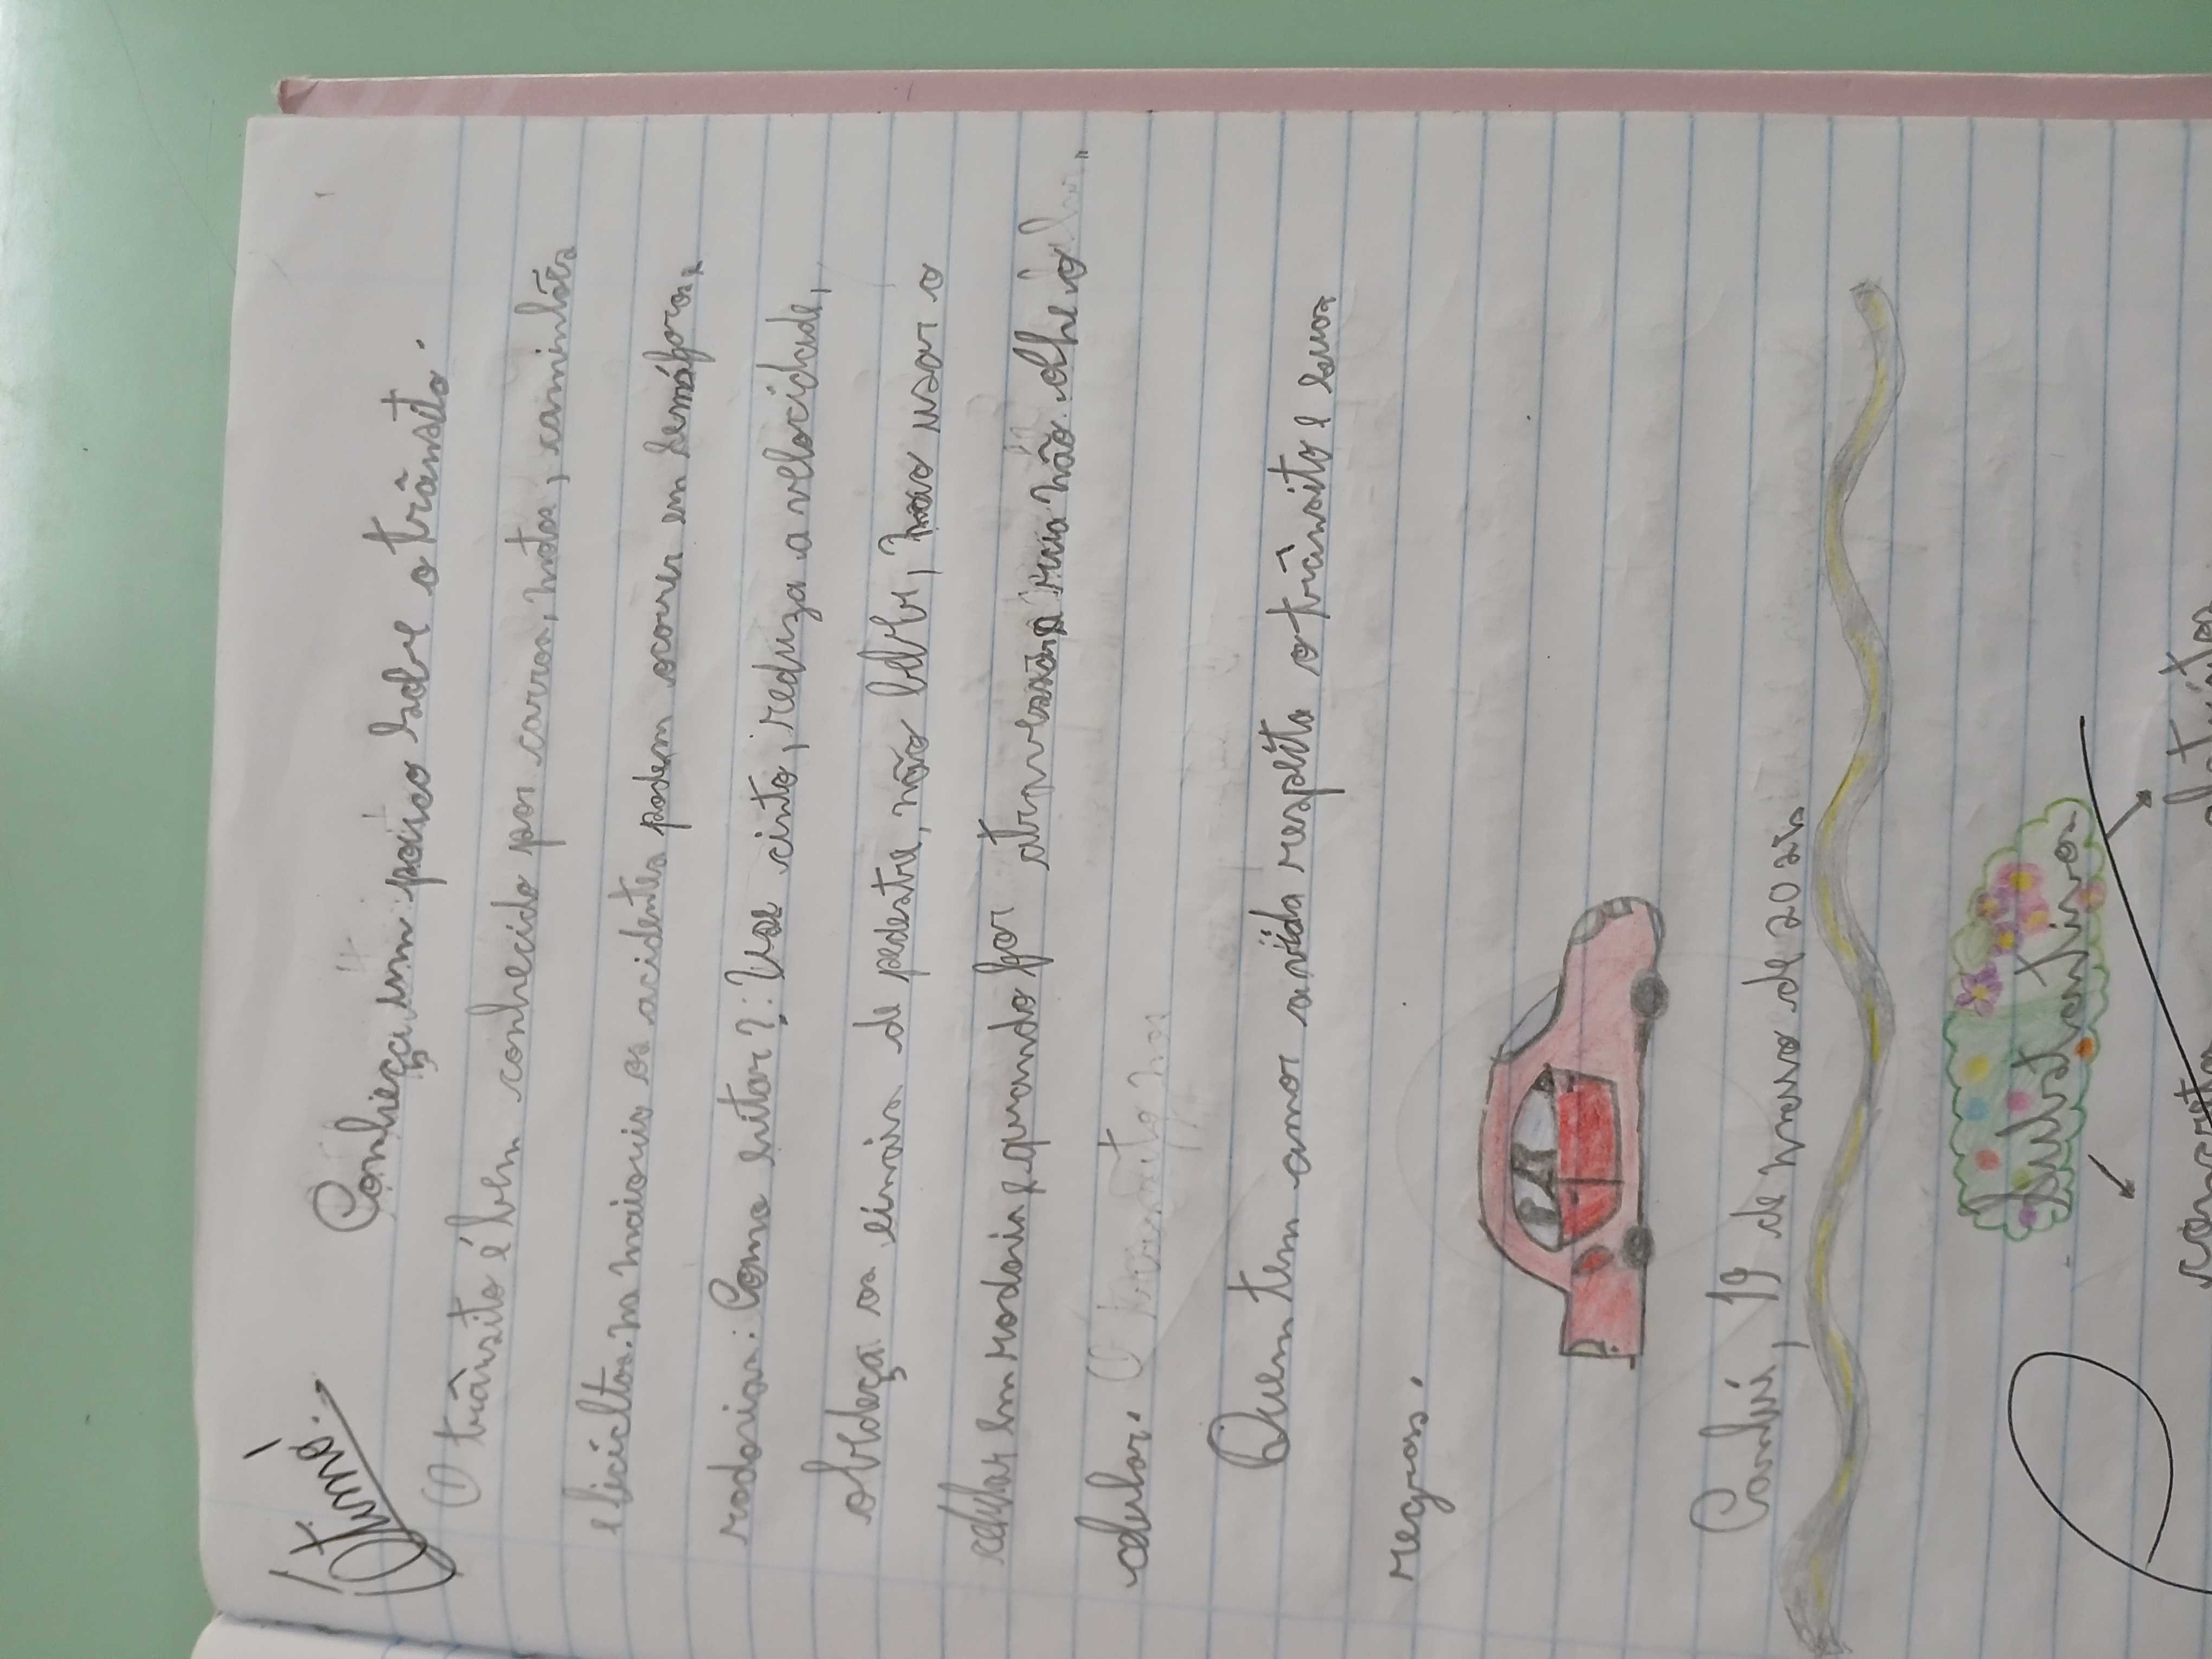 Ótimo.
Conheça um pouco sobre o trânsito.
O trânsito é bem conhecido por carros, motos, caminhões
e bicicltas. na maioris os acidentes podem ocorrer em semáforos,
rodovias. Como evitar?: Use cinto, reduza a velocidade,
obedeça os sinais de pedestre, não beber, nao usar o
celular em rodovia e quando for atravessar a rua não olhe o
celular.
Quem tem amor a vida respeita o trânsito e suas
regras.
Cambuí, 19 de março de 2025
Substantivos